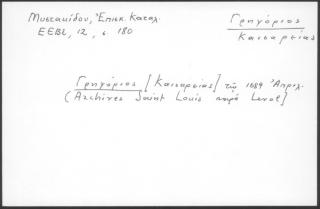 Μυστακίδου, Ἐπισκ. Καταλ.
ΕΕΒΣ, 12, σ. 180
Γρηγόριος
Καισαρείας
Γρηγόριος [Καισαρείας] τῷ 1689 Ἀπριλ.
(Archives Saint Louis παρὰ Level]